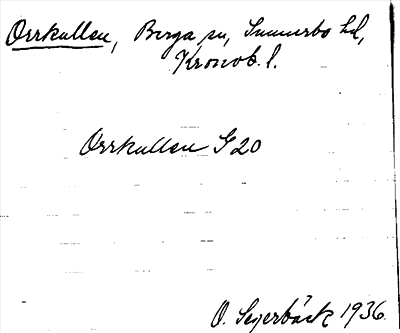 Orrkullen, Berga sn, Sunnerbo hd,
Kronob. l.
Orrkullen G20
O. Segerbäck 1936.